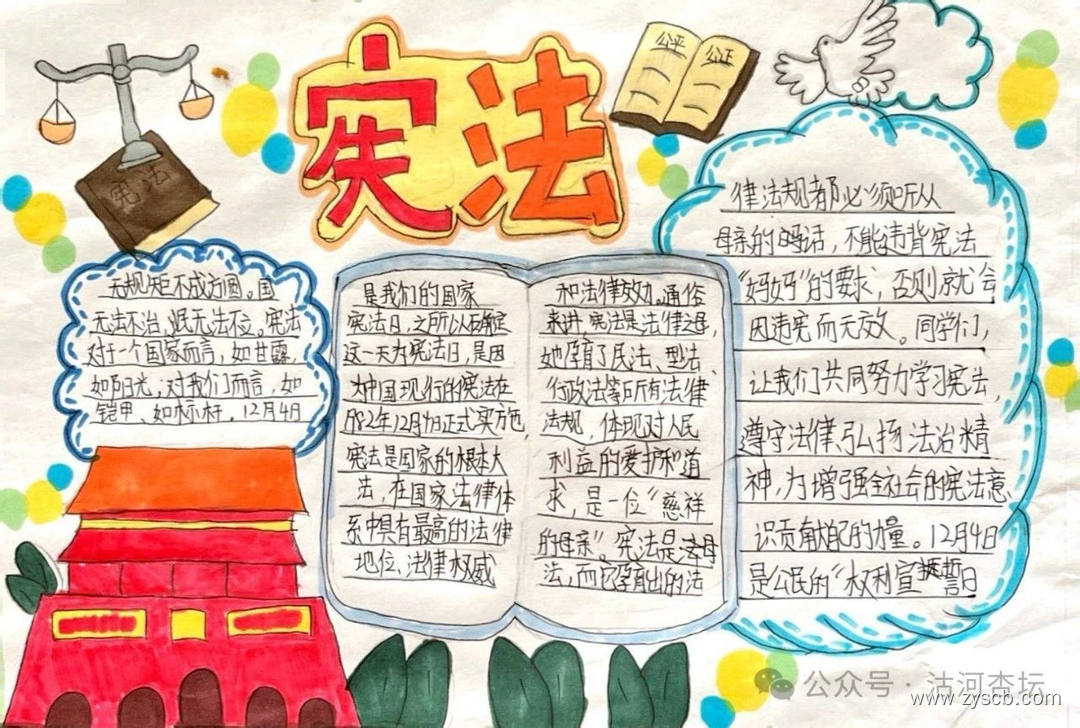 宪法
公平
公正
宪法
无规矩不成方圆。国
无法不治,民无法不立。宪法
对于一个国家而言,如甘露,
如阳光;对我们而言,如
铠甲、如标杆。12月4日
是我们的国家
宪法日,之所以确定
这一天为宪法日,是因
为中国现行的宪法在
1982年12月4日正式实施,
宪法是国家的根本大
法,在国家法律体
系中具有最高的法律
地位、法律权威
和法律效力。通俗
来讲,宪法是法律之母,
她孕育了民法、刑法
、行政法等所有法律
法规,体现对人民
利益的爱护和追
求,是一位“慈祥
的母亲”。宪法是
法,而它孕育出的法
律法规都必须听从
母亲的妈话,不能违背宪法
“妈妈”的要求,否则就会
因违宪而无效。同学们,
让我们共同努力学习宪法,
遵守法律,弘扬法治精
神,为增强全社会的宪法意
识贡献我的力量。12月4日
是公民的“权利宣誓日
公众号·沽河杏坛
www.zyscb.com